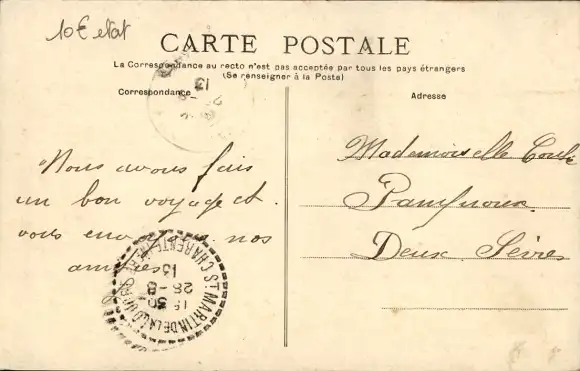 10 € etat
CARTE POSTALE
La Correspondance au recto n'est pas acceptée par tous les pays étrangers
(Se renseigner à la Poste)
Correspondance
Adresse
Nous avons fais
un bon voyage et
vous nos
amitiés
Mademoiselle
Pamproux
Deux Sèvres
ST MARTIN DE LA
CHARENTE
13
28-8
30